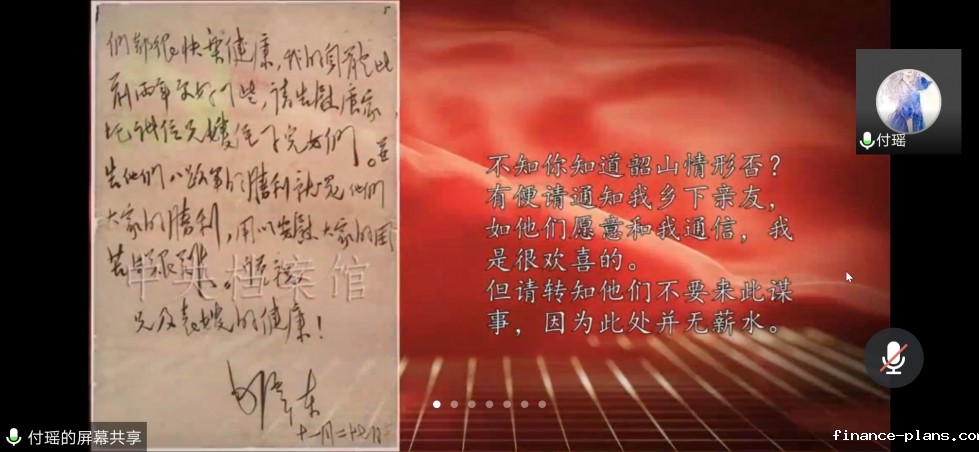 5
們都很快樂健康,我的身體比
前兩年更好了些,請告慰唐家
圫諸位兄嫂侄子兒女們。並
告他們八路軍的勝利就是他們
大家的勝利,用以安慰大家的困
苦與艱難。謹祝
兄及表嫂的健康!
毛澤東
十一月二十七日
中央档案馆
不知你知道韶山情形否?
有便请通知我乡下亲友,
如他们愿意和我通信,我
是很欢喜的。
但请转知他们不要来此谋
事,因为此处并无薪水。
付瑶
付瑶的屏幕共享
finance-plans.co